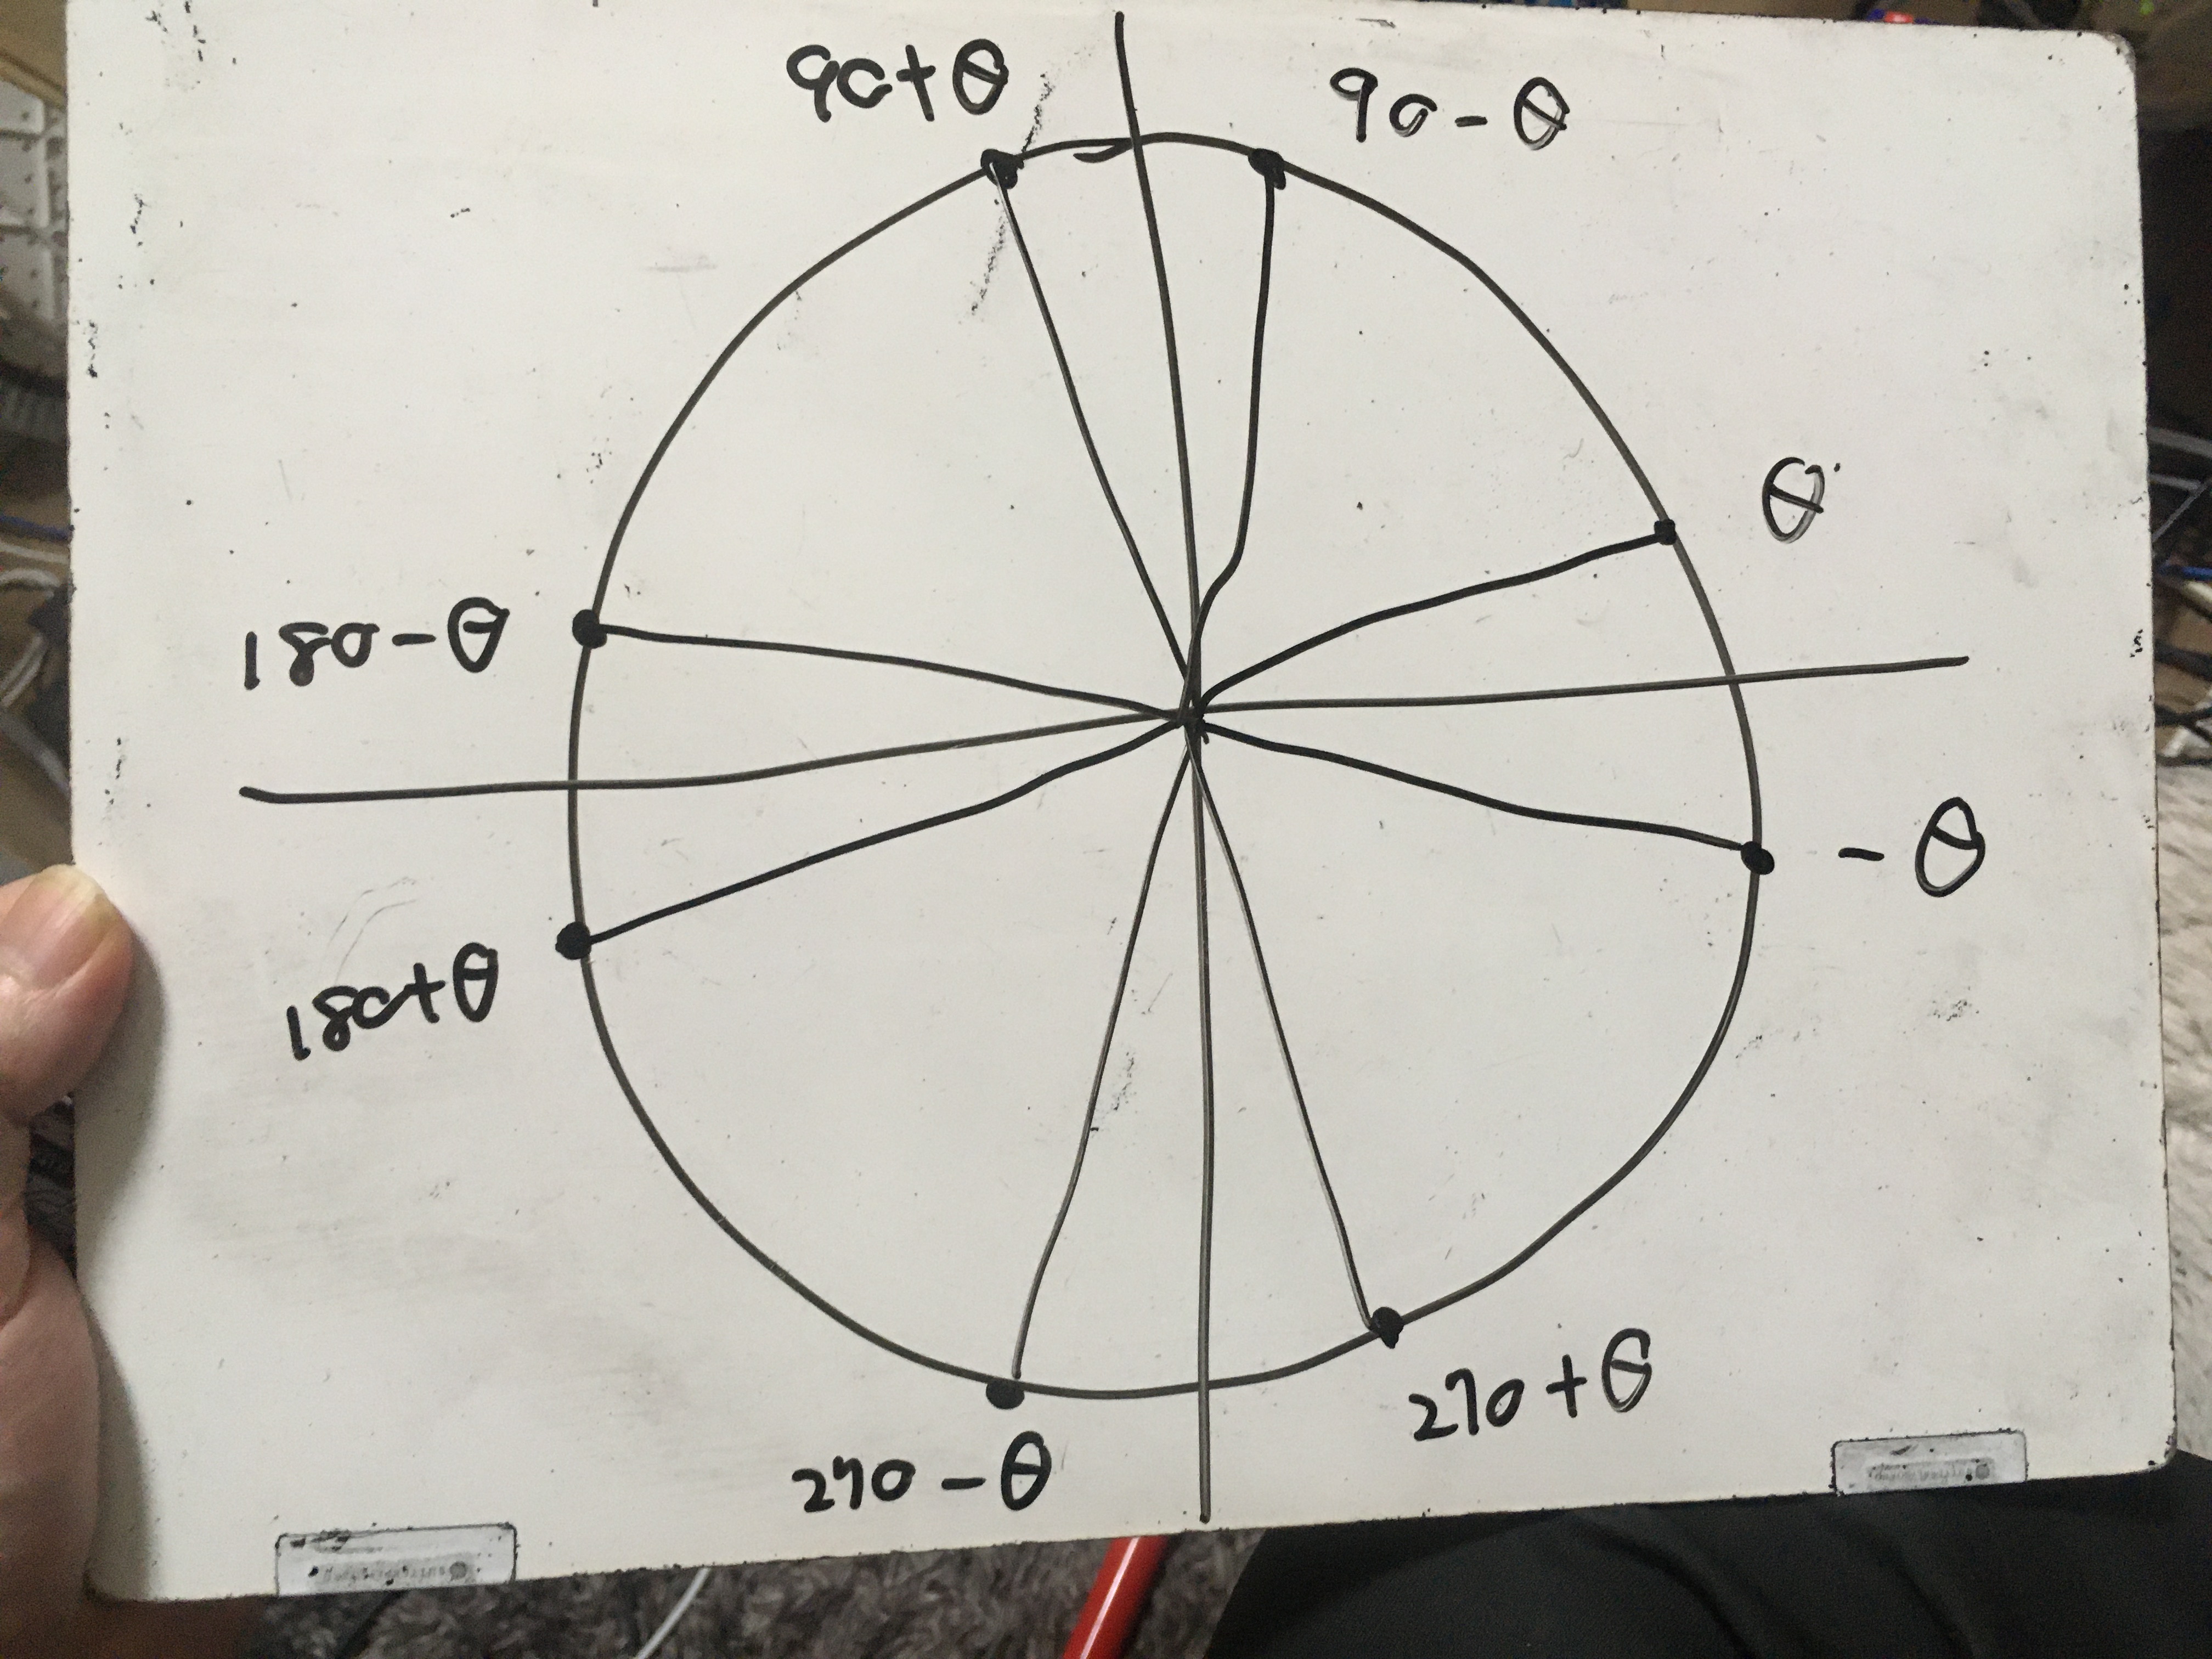 90+θ
90-θ
180-θ
θ
180+θ
-θ
270-θ
270+θ